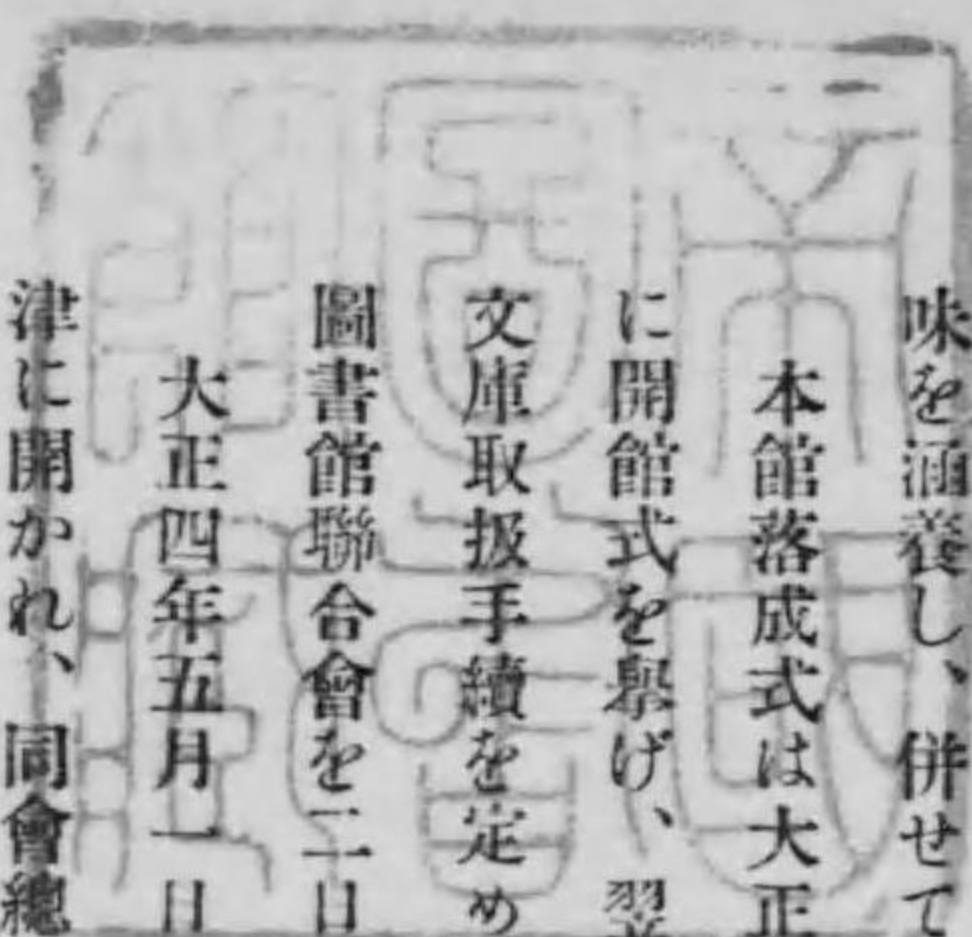 味を涵養し、併せて
本館落成式は大正
に開館式を擧げ、翌
文庫取扱手續を定め
圖書館聯合會を二日
大正四年五月一日
津に開かれ、同會總